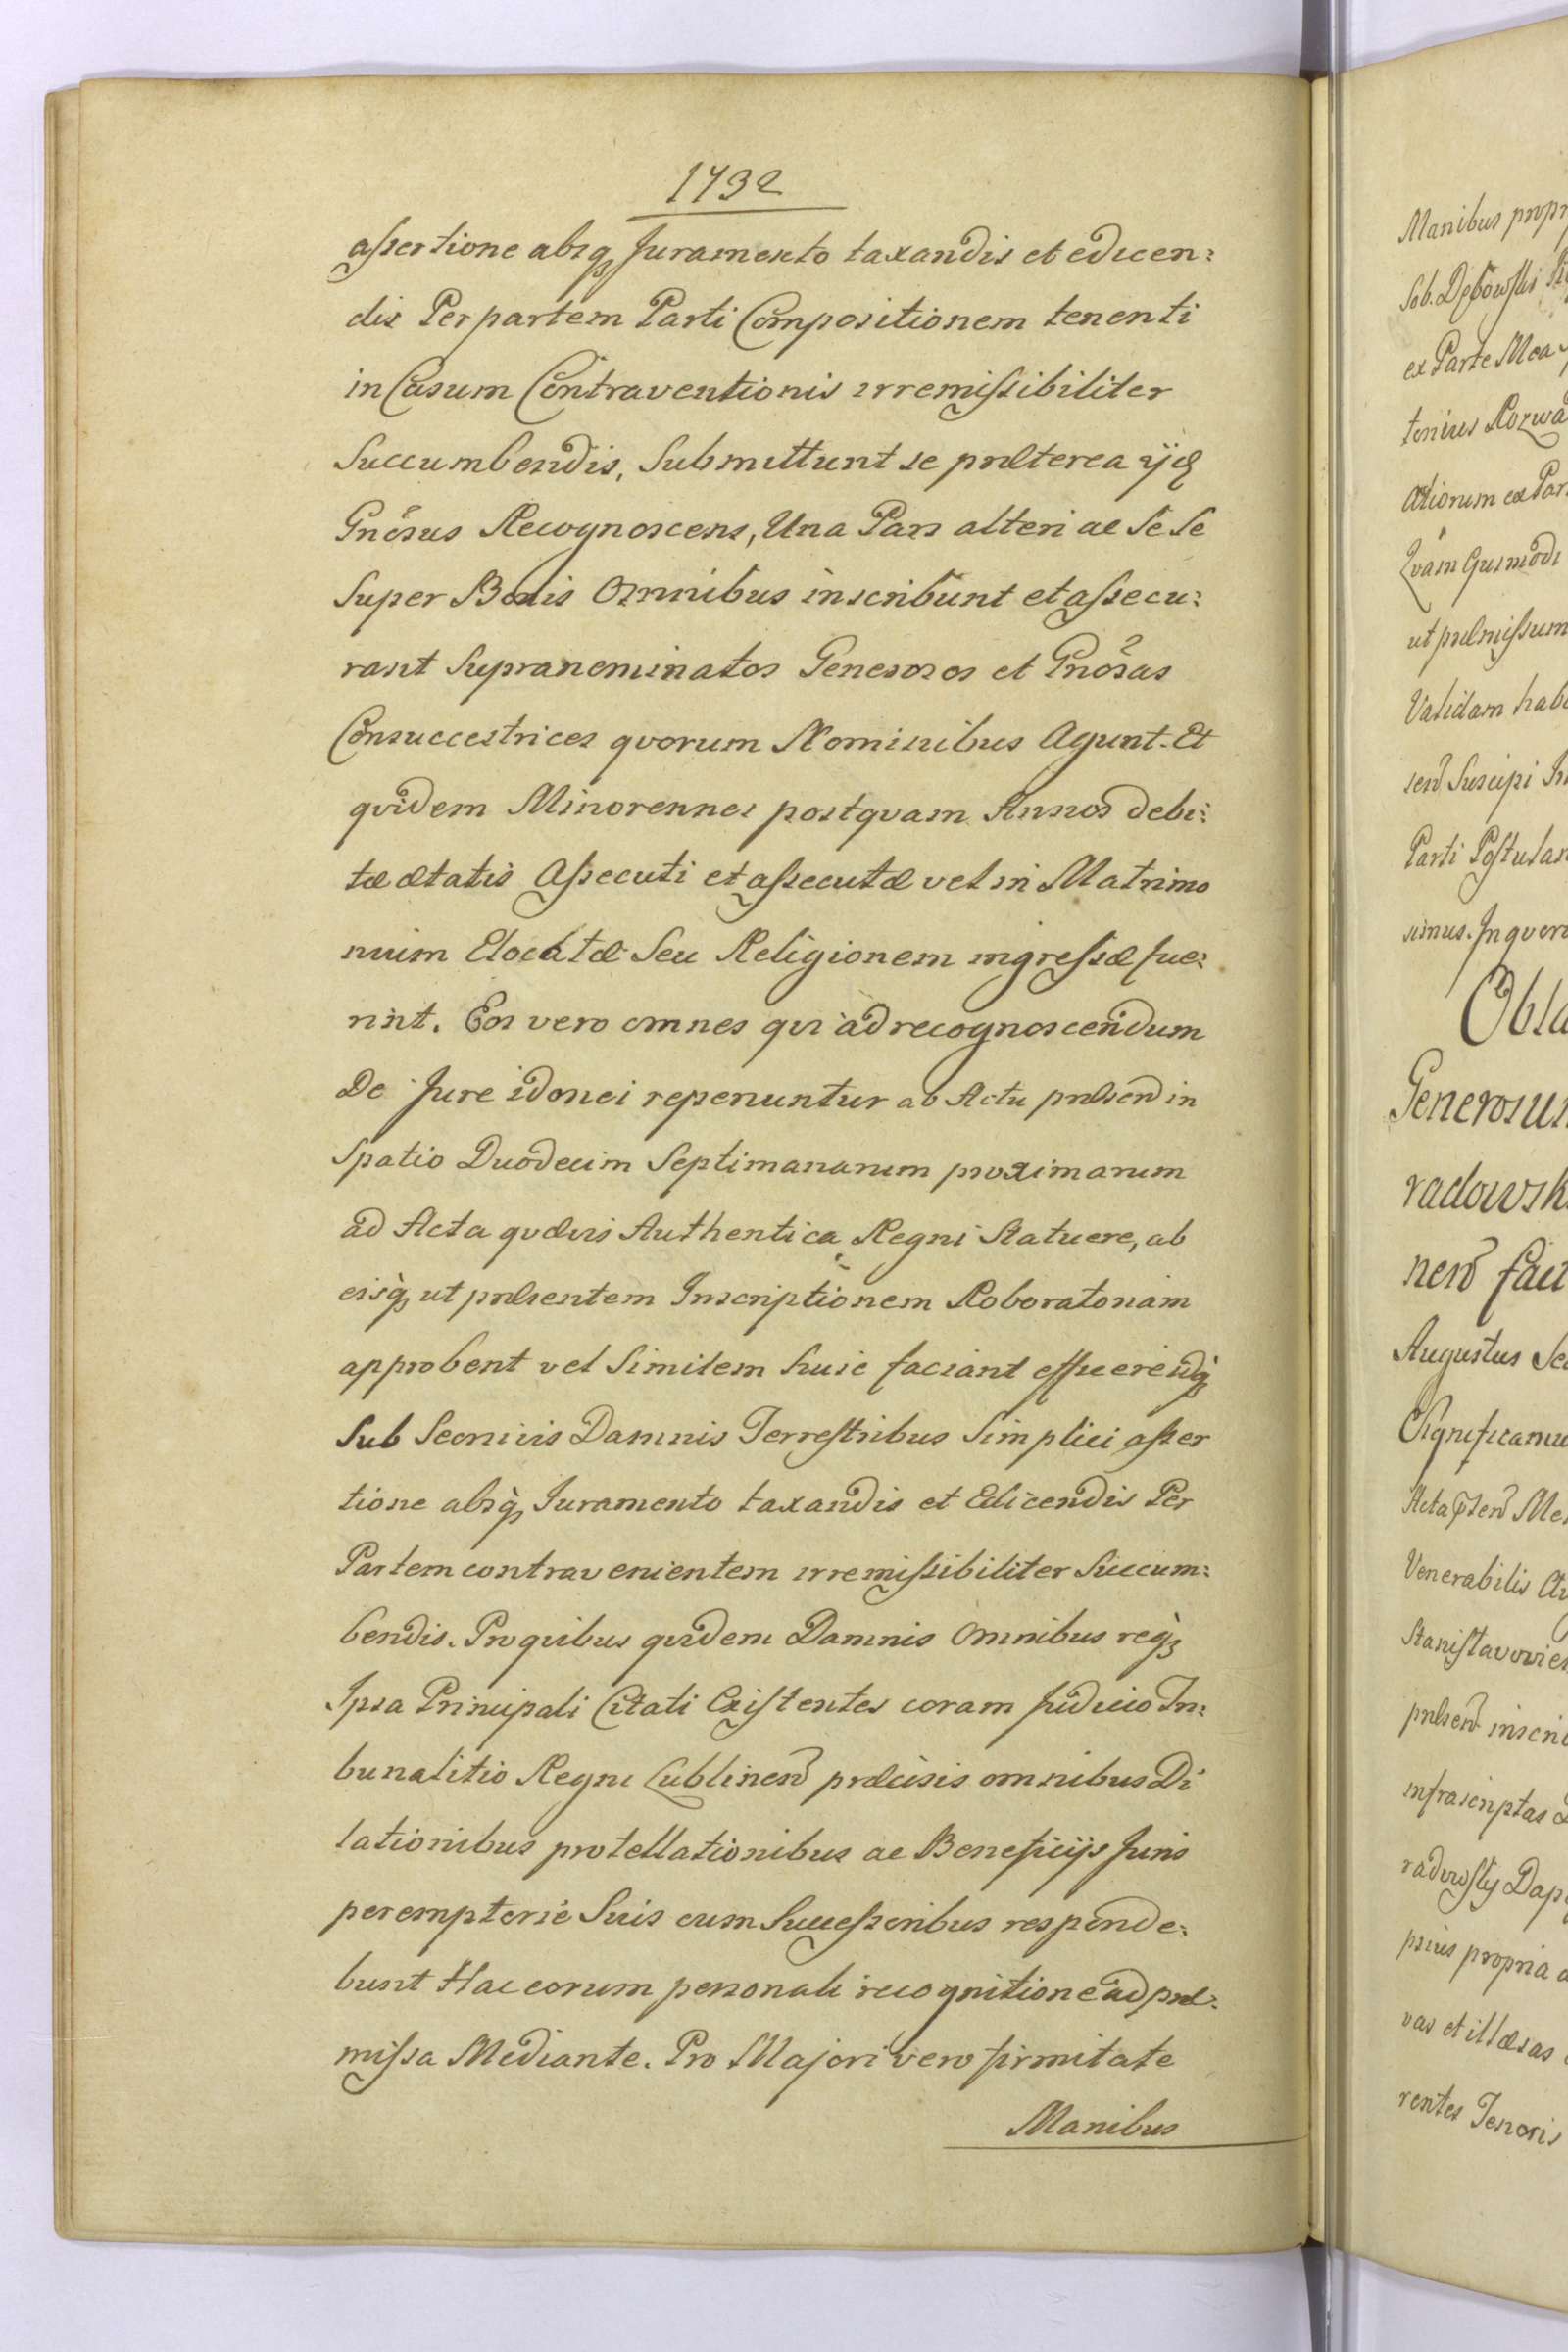 1732
assertione absq; Juramento taxandis et edicen:
dis Per partem Parti Compositionem tenenti
in Casum Contraventionis irremissibiliter
Succumbendis, Submittunt se præterea ijd
Gnosus Recognoscens, Una Pars alteri ac Se Se
Super Bonis Omnibus inscribunt et assecu:
rant Supranominatos Generosos et Gnosas
Consuccestrices quorum Nominibus Agunt. Et
quidem Minorennes postquam Annos debi:
tæ ætatis Assecuti et assecutæ vel in Matrimo
nium Elocatæ Seu Religionem ingressæ fue:
rint. Eos vero omnes qui ad recognoscendum
De Jure idonei reperiuntur ab Actu præsen in
Spatio Duodecim Septimanarum proximarum
ad Acta quævis Authentica Regni Statuere, ab
eisq; ut præsentem Inscriptionem Roboratoriam
approbent vel Similem huic faciant efficientq;
Sub Seorsivis Damnis Terrestribus Simplici asser
tione absq; Juramento taxandis et Edicendis Per
Partem contravenientem irremissibiliter Succum:
bendis. Pro quibus quidem Damnis Omnibus req;
Ipsa Principali Citati Existentes coram Judicio Tri:
bunalitio Regni Lublinen præcisis omnibus Di
lationibus protellationibus ac Beneficijs Juris
peremptorie Suis cum Successoribus responde:
bunt Hac eorum personali recognitione ad præ:
missa Mediante. Pro Majori vero firmitate
Manibus
Manibus propr
Sob. Dębowski
ex Parte Mea
tonius Rozwad
ationum ex Par
Quam Gusmodi
ut præmissum
Validam hab
sen Suscipi
Parti Postulan
simus. In quor
Obla
Generosu
radowsk
nen fact
Augustus Sec
Significamu
Acta
Venerabilis
Stanislavovien
præsen inscri
infrascriptas
radowsky Dap
prius propria
vas et illæsas
rentes Tenoris